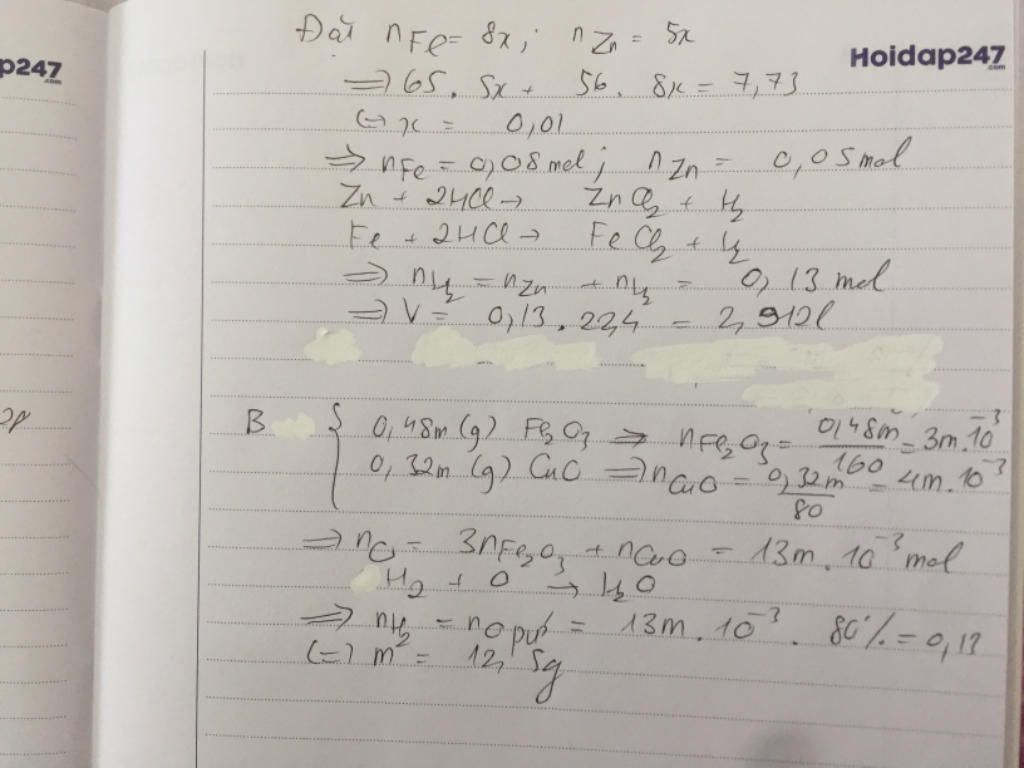 Đặt nFe = 8x; nZn = 5x
Hoidap247
.com
p247
.com
=> 65. 5x + 56. 8x = 7,73
(=) x = 0,01
=> nFe = 0,08 mol; nZn = 0,05 mol
Zn + 2HCl → ZnCl2 + H2
Fe + 2HCl → FeCl2 + H2
=> nH2 = nZn + nH2 = 0,13 mol
=> V = 0,13 . 22,4 = 2,912l
B { 0,48m (g) Fe2O3 => nFe2O3 = 0,48m/160 = 3m.10^-3
0,32m (g) CuO => nCuO = 0,32m/80 = 4m.10^-3
=> nO = 3nFe2O3 + nCuO = 13m. 10^-3 mol
H2 + O → H2O
=> nH2 = nO pứ = 13m. 10^-3 . 80% = 0,13
(=) m = 12,5g